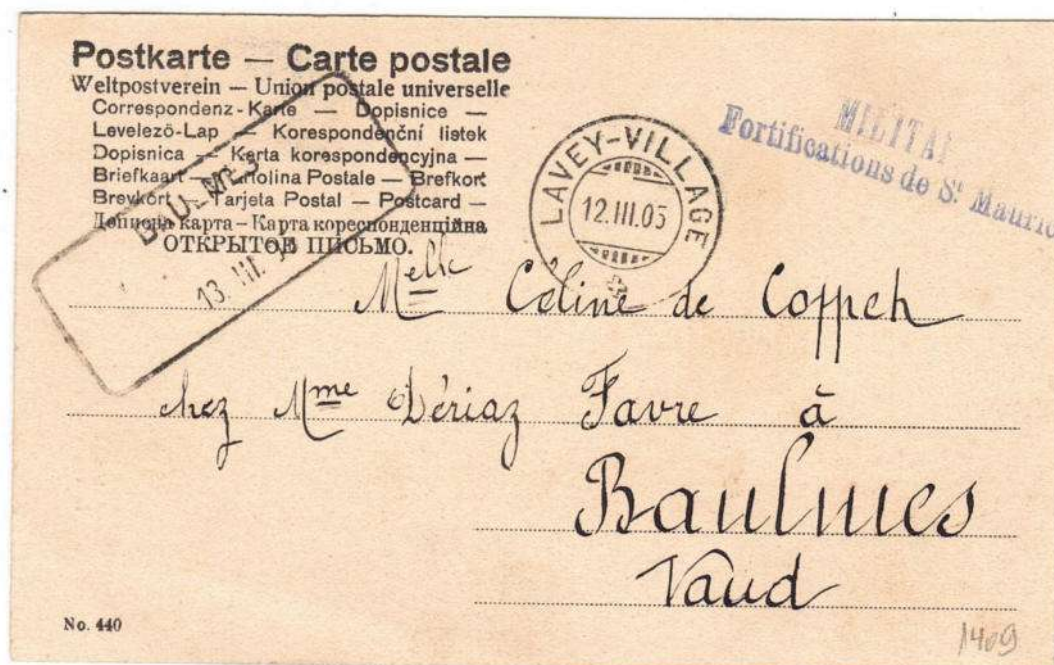 Postkarte — Carte postale
Weltpostverein — Union postale universelle
Correspondenz-Karte — Dopisnice —
Levelező-Lap — Korespondenční listek
Dopisnica — Karta korespondencyjna —
Briefkaart — Cartolina Postale — Brefkort
Brevkort — Tarjeta Postal — Postcard —
Дописна карта – Карта кореспонденційна
ОТКРЫТОЕ ПИСЬМО.
BAULMES
13. III.
LAVEY-VILLAGE
12.III.05
MILITAI
Fortifications de St Mauric
Melle Céline de
chez Mme Dériaz Favre à
Baulmes
Vaud
No. 440
1409